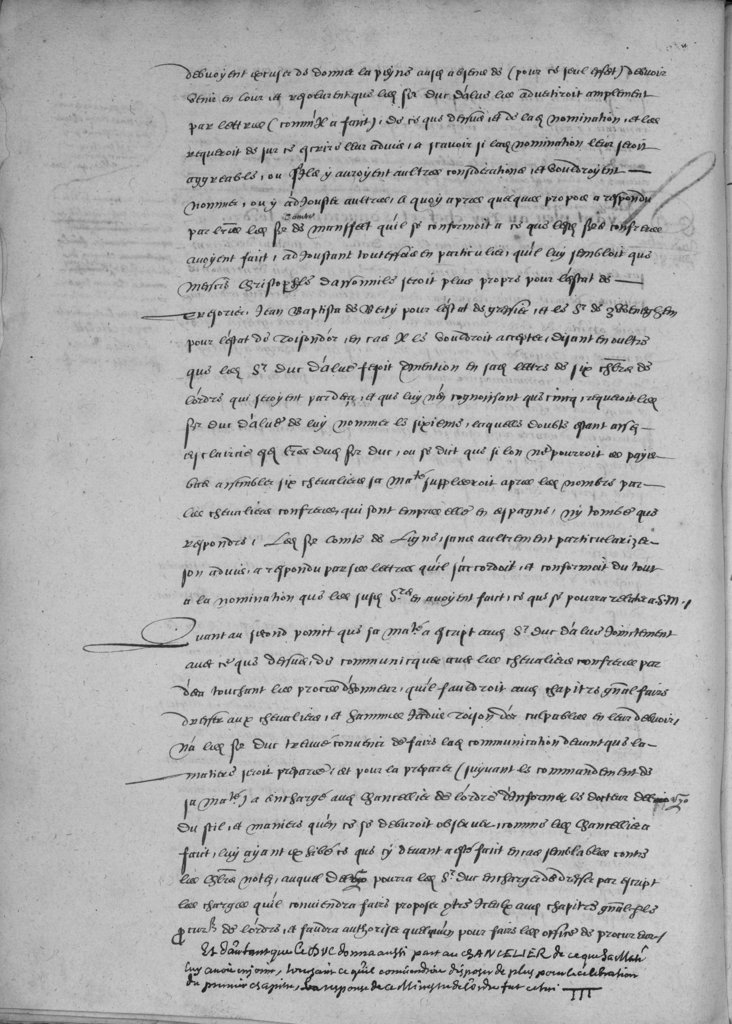 debvoyent excuser de donner la peyne ausd absens de (pour ce seul effect) debvoir
venir en Cour, et resolurent que led Sr duc dalve les advertiroit amplement
par lettres (comm'il a faict), de ce que dessus, et de lad nomination, et les
requeroit de sur ce escrire leur advis, a scavoir si lad nomination leur seroit
aggreable, ou s'ilz y auroyent aultres considerations, et vouldroyent
nommer, ou y adjouster aultres, a quoy apres quelques propos a respondu
par lres led Sr Conte de Mansfelt qu'il se conformoit a ce que lesd Srs confreres
avoyent faict, adjoustant toutesfois en particulier, qu'il luy sembloit que
messire Christophle dassonville seroit plus propre pour lestat de
tresorier, Jean Baptista de Berty pour lestat de greffier, et le Sr de
pour lestat de Toisondor, en cas il le vouldroit accepter, disant en oultre
que led Sr duc dalve faisoit mention en sad lettre de six chlrs de
l'ordre qui seroyent par deca, et que luy n'en cognoissant que cinq, requeroit led
Sr duc dalve de luy nommer le sixieme, lequelle doubte estant assez
esclaircie esd lres dud Sr duc, ou se dict que si lon ne pourroit es pays
bas assembler six chevaliers sa Mate suppleeroit apres led nombre par
les chevaliers confreres, qui sont empres elle en espagne, n'y tombe que
respondre, Led Sr Conte de Ligne, sans aultrement particularizer
son advis, a respondu par ses lettres qu'il s'accordoit, et conformoit du tout
a la nomination que les susd Srs en avoyent faict, ce que se pourra relater a S.M.
Quant au second poinct que sa Mate a escript aud Sr duc dalve joinctement
avec ce que dessus, de communicquer avec les chevaliers confreres par
deca touchant les proces dhonneur, qu'il fauldroit aud chapitre gnal faire
dresser aux chevaliers, et jadis Toison dor culpables en leur debvoir,
n'a led Sr duc treuve convenir de faire lad communication devant que la
matiere seroit preparee, et pour la preparer (suyvant le commandement de
sa Mate) a encharge aud Chancellier de lordre d'informer le docteur del
du stil, et maniere qu'en ce se debvroit observer, comme led Chancellier a
faict, luy ayant exhibe ce que cy devant a este faict en cas semblables contre
les chlrs notez, auquel pourra led Sr duc encharger de dresser par escript
les charges qu'il conviendra faire proposer contre iceulx aud chapitre gnal
procur de lordre, et fauldra authoriser quelqu'un pour faire les offices de procureur
Et d'autant que le DUC donna aussi part au CHANCELIER de ce que Sa Mate
luy avoit enjoint, touchant ce qu'il conviendroit disposer de plus pour la celebration
du premier chapitre, la reponse de ce Ministre de l'ordre fut celui